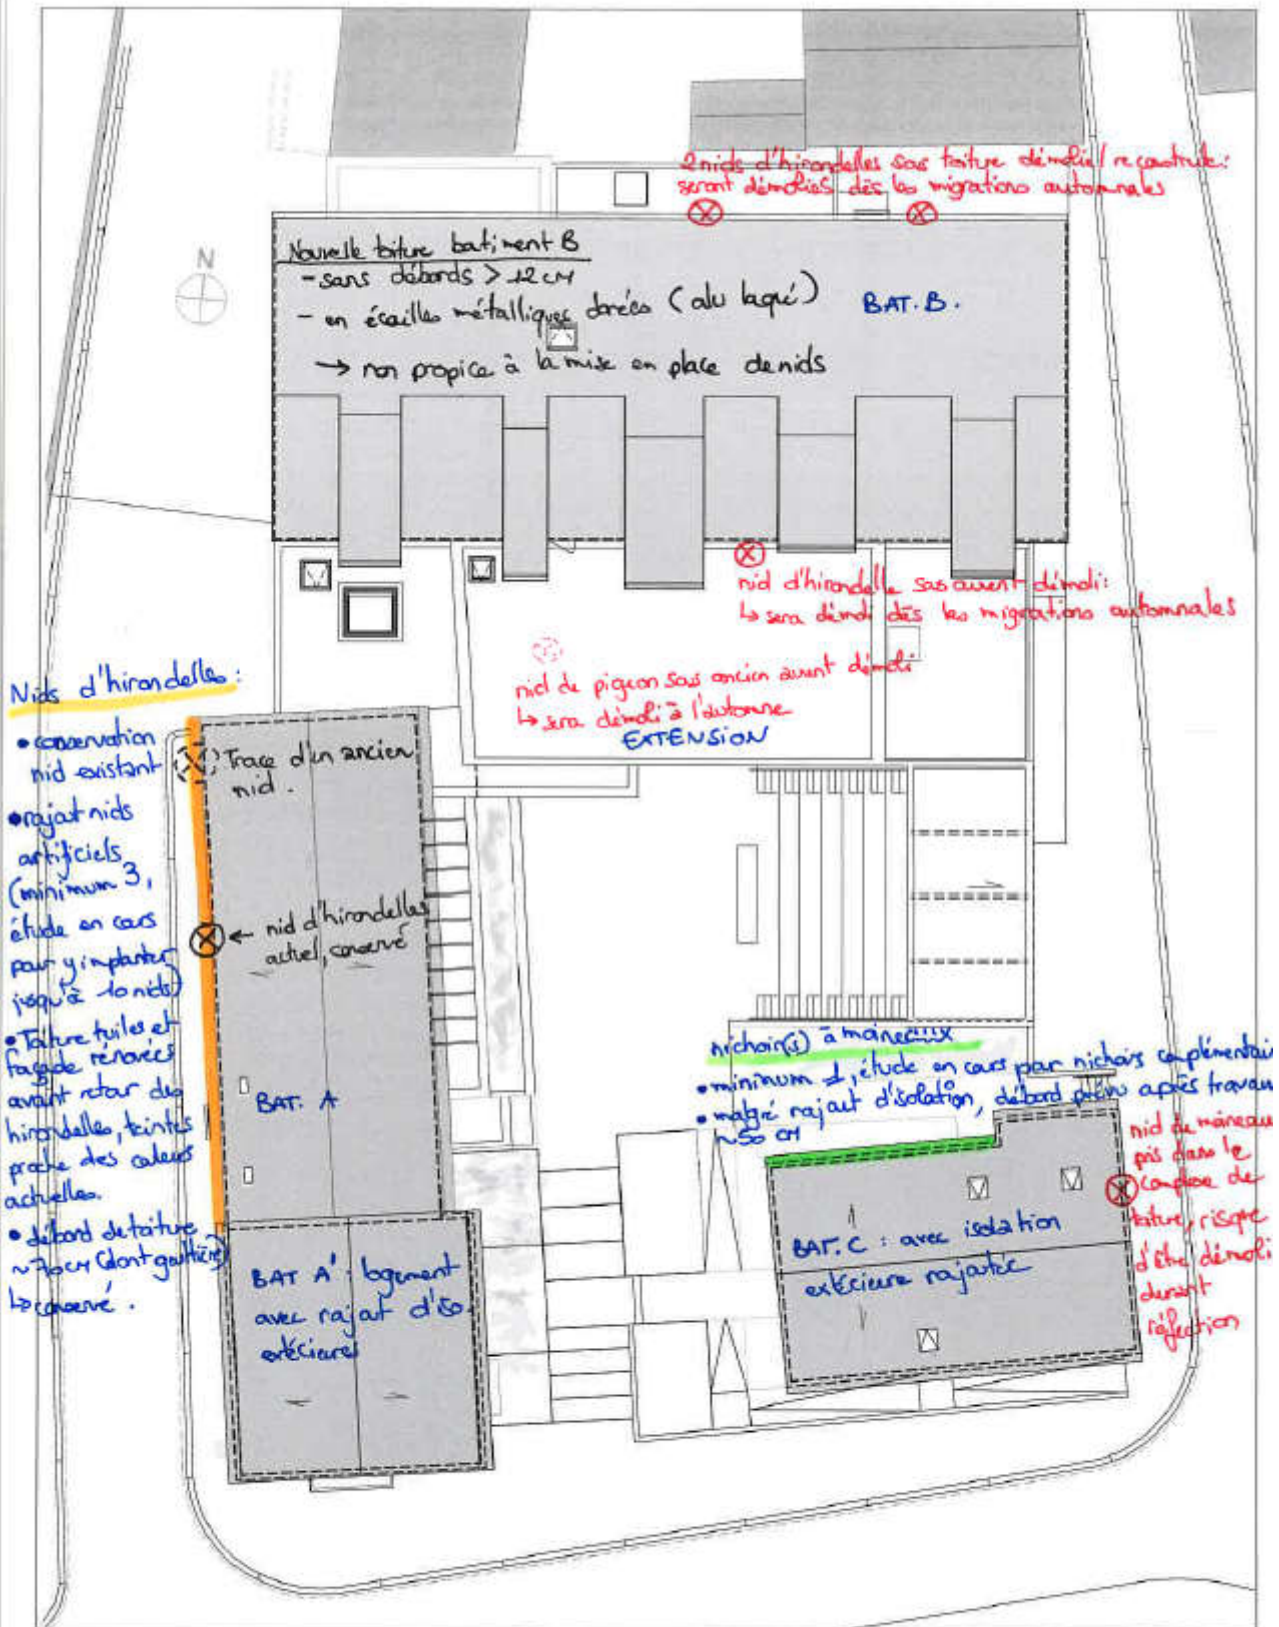 2 nids d'hirondelles sous toiture démolie/reconstruite:
seront démoliés dès les migrations automnales
N
Nouvelle toiture batiment B
- sans débords > 12 cm
- en écailles métalliques dorées (alu laqué)
→ non propice à la mise en place de nids
BAT. B.
nid d'hirondelle sous auvent démoli:
↳ sera démoli dès les migrations automnales
nid de pigeon sous ancien auvent démoli
↳ sera démoli à l'automne
EXTENSION
Nids d'hirondelles :
• conservation
nid existant
• rajout nids
artificiels
(minimum 3,
étude en cours
pour y implanter
jusqu'à 10 nids)
• Toiture tuiles et
façade rénovées
avant retour des
hirondelles, teintes
proche des couleurs
actuelles.
• débord de toiture
~70cm (dont gouttière)
↳ conservé.
Trace d'un ancien
nid.
← nid d'hirondelles
actuel, conservé
BAT. A
BAT A' : logement
avec rajout d'iso.
extérieure
nichoir(s) à moineaux
• mininum 1, étude en cours pour nichoirs complémentair
• malgré rajout d'isolation, débord prévu après travau
~50 cm
nid de moineau
pris dans le
complexe de
toiture, risque
d'être démoli
durant
réfection
BAT. C : avec isolation
extérieure rajoutée